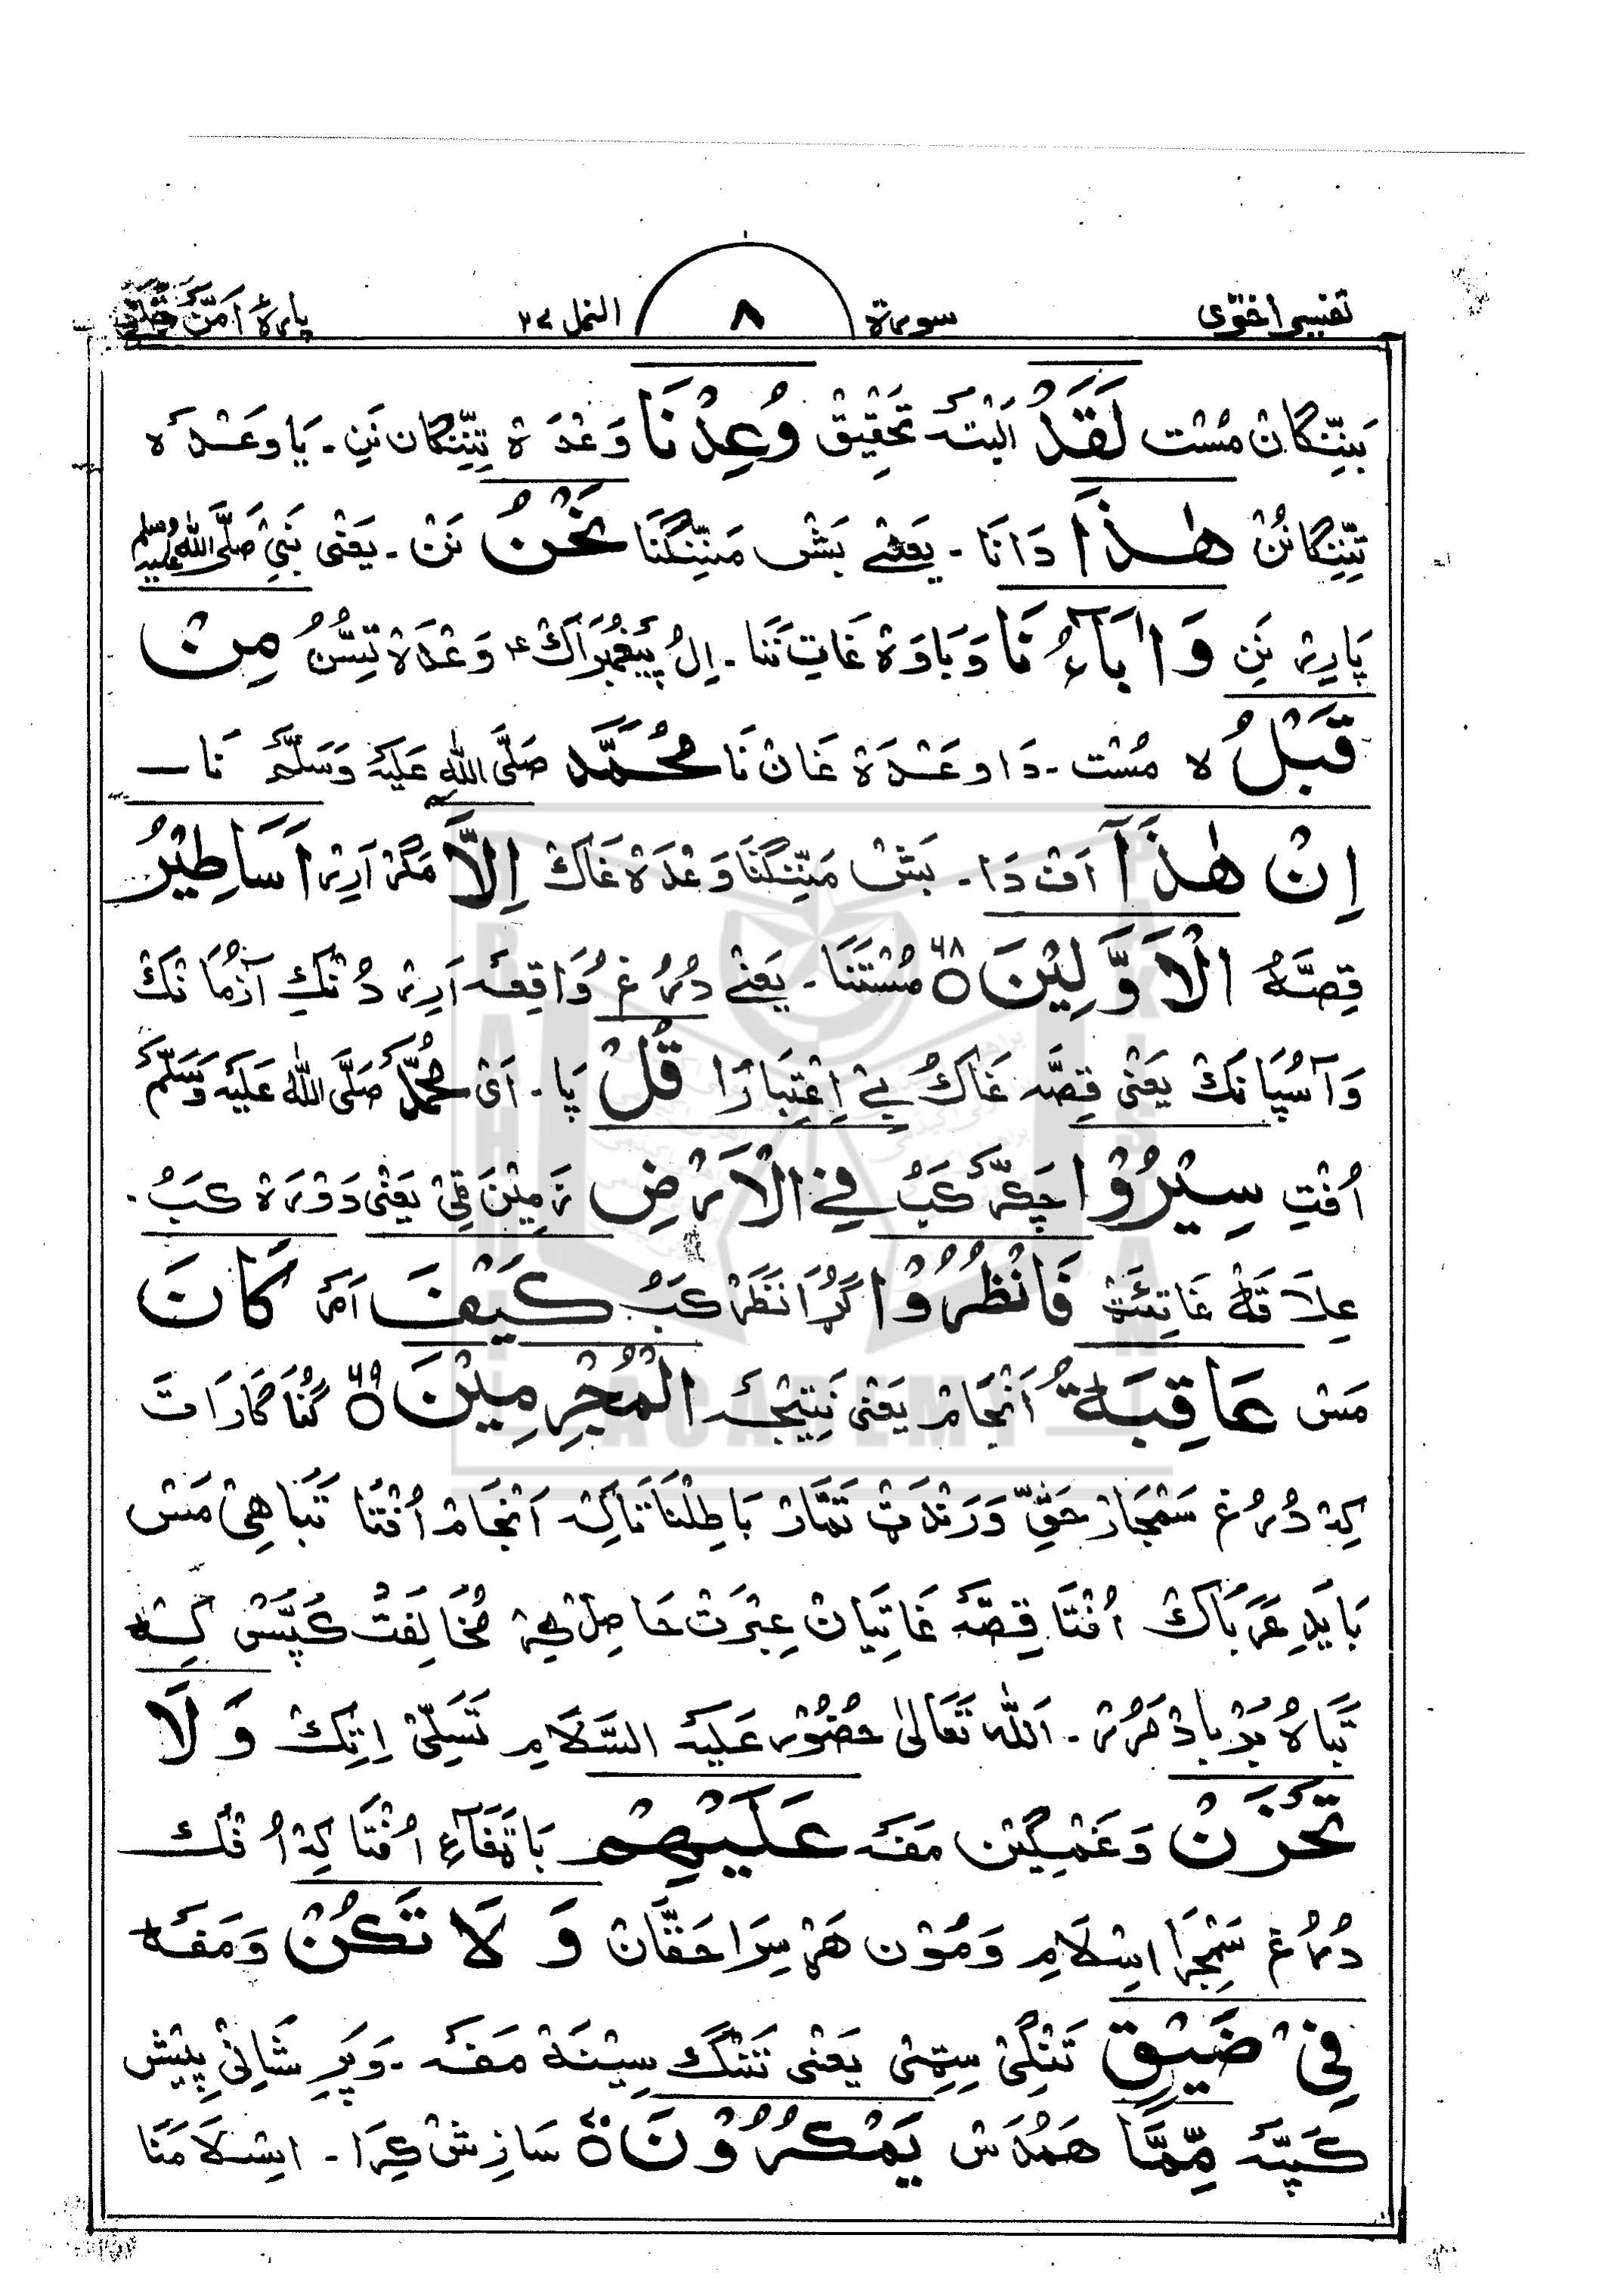 تفسیر اختری سورة ۸ النمل ۲۷ پارهٔ اَمَّنْ خَلَقَ
بَنِنِّگان مُسْت لَقَدْ اَلبتہ تحقیق وُعِدْنَا وَعْدَہ تِنِّنگان نَنِ ۔ یا وعَدہ
تِنِّنگانُنْ هٰذَا دَانَا ۔ یعنی بَش مَنِّنگنَا نَحْنُ نَنْ ۔ یَعنی نَبِیْ صَلَّی اللّٰہُ عَلَیْہِ وسلم
پَارِیر نَنِ وَاٰبَآءُنَا وَبَاوَہ غَاتِ نَنَا ۔ اِلُ پَیغَمْبَرَاک وَعْدَہ تِسُّنُ مِنْ
قَبْلُ لا مُسْت ۔ دَا وعَدَہ غَان نَا مُحَمَّد صَلَّی اللّٰہِ عَلَیْہِ وَسَلَّمَ نَا ۔
اِنْ هٰذَآ اَفَ دَا ۔ بَش مَنِّنگنَا وَعْدَہ غَاک اِلَّا مَگر اَرِیر اَسَاطِيْرُ
قِصَّہُ الْاَوَّلِيْنَ ۶۸ مُسْتَنَا ۔ یَعنی دُرُغ وَاقِعہ اَرِیر دُنکِ آزُمَانک
وَآسُپَانک یَعنی قِصَّہ غَاکُ بے اِعْتِبَارَا قُلْ پَا ۔ اَیْ مُحَمَّدُ صَلَّی اللّٰہُ عَلَیْہِ وَسَلَّمَ
اُفْتِ سِيْرُوْا چَکَّر کَبُ فِی الْاَرْضِ زَمِیْنَ ٹِیْ یَعْنی دَوْرَہ کَبُ ۔
عِلاَقَہْ غَاتِیْٹ فَانْظُرُوْا گُڑَا نَظَرْ کَبُ كَيْفَ اَمَرَ كَانَ
مَسْ عَاقِبَةُ اَنْجَام یَعْنی نَتِیْجَہ الْمُجْرِمِيْنَ ۶۹ گُنَاہگَارَاتَ
کِہ دُرُغ سَمْجَار حَقِّ وَرَنْدَٹ تَمَّار بَاطِلْنَا نَاکہ اَنْجَام اُفْتَا تَبَاهِیْ مَسْ
بَایَدِ عَرَبَاک اُفْتَا قِصَّہ غَاتِیَان عِبْرَت حَاصِل کِر مُخَالِفَت کَپَّسْ کہ
تَبَاہ بَرْبَاد مَرُر ۔ اَللّٰہ تَعَالٰی حضُوْر عَلَیْہِ السَّلَام تَسَلِّیْ اِتِکْ وَلَا
تَحْزَنْ وَغَمْگِیْن مَفَہ عَلَيْهِمْ بَاتَفَآءِ اُفْتَا کِہ اُفْک
دُرُغ سَمْجَرَا اسْلَام وَمُوْن هَرْسِرَا حَقَّان وَلَا تَكُنْ وَمَفَہ
فِیْ ضَيْقٍ تَنْگِی سِیِّٹی یَعْنی تَنْگ سِیْنَہ مَفَہ ۔ وَپَرِشَانِیْ پِیْش
کَپَّہ مِّمَّا هَمُدَس يَمْكُرُوْنَ ۷۰ سَازِش کِرَا ۔ اسْلَامَنَا
PAKISTAN
BRAHUI
ACADEMY